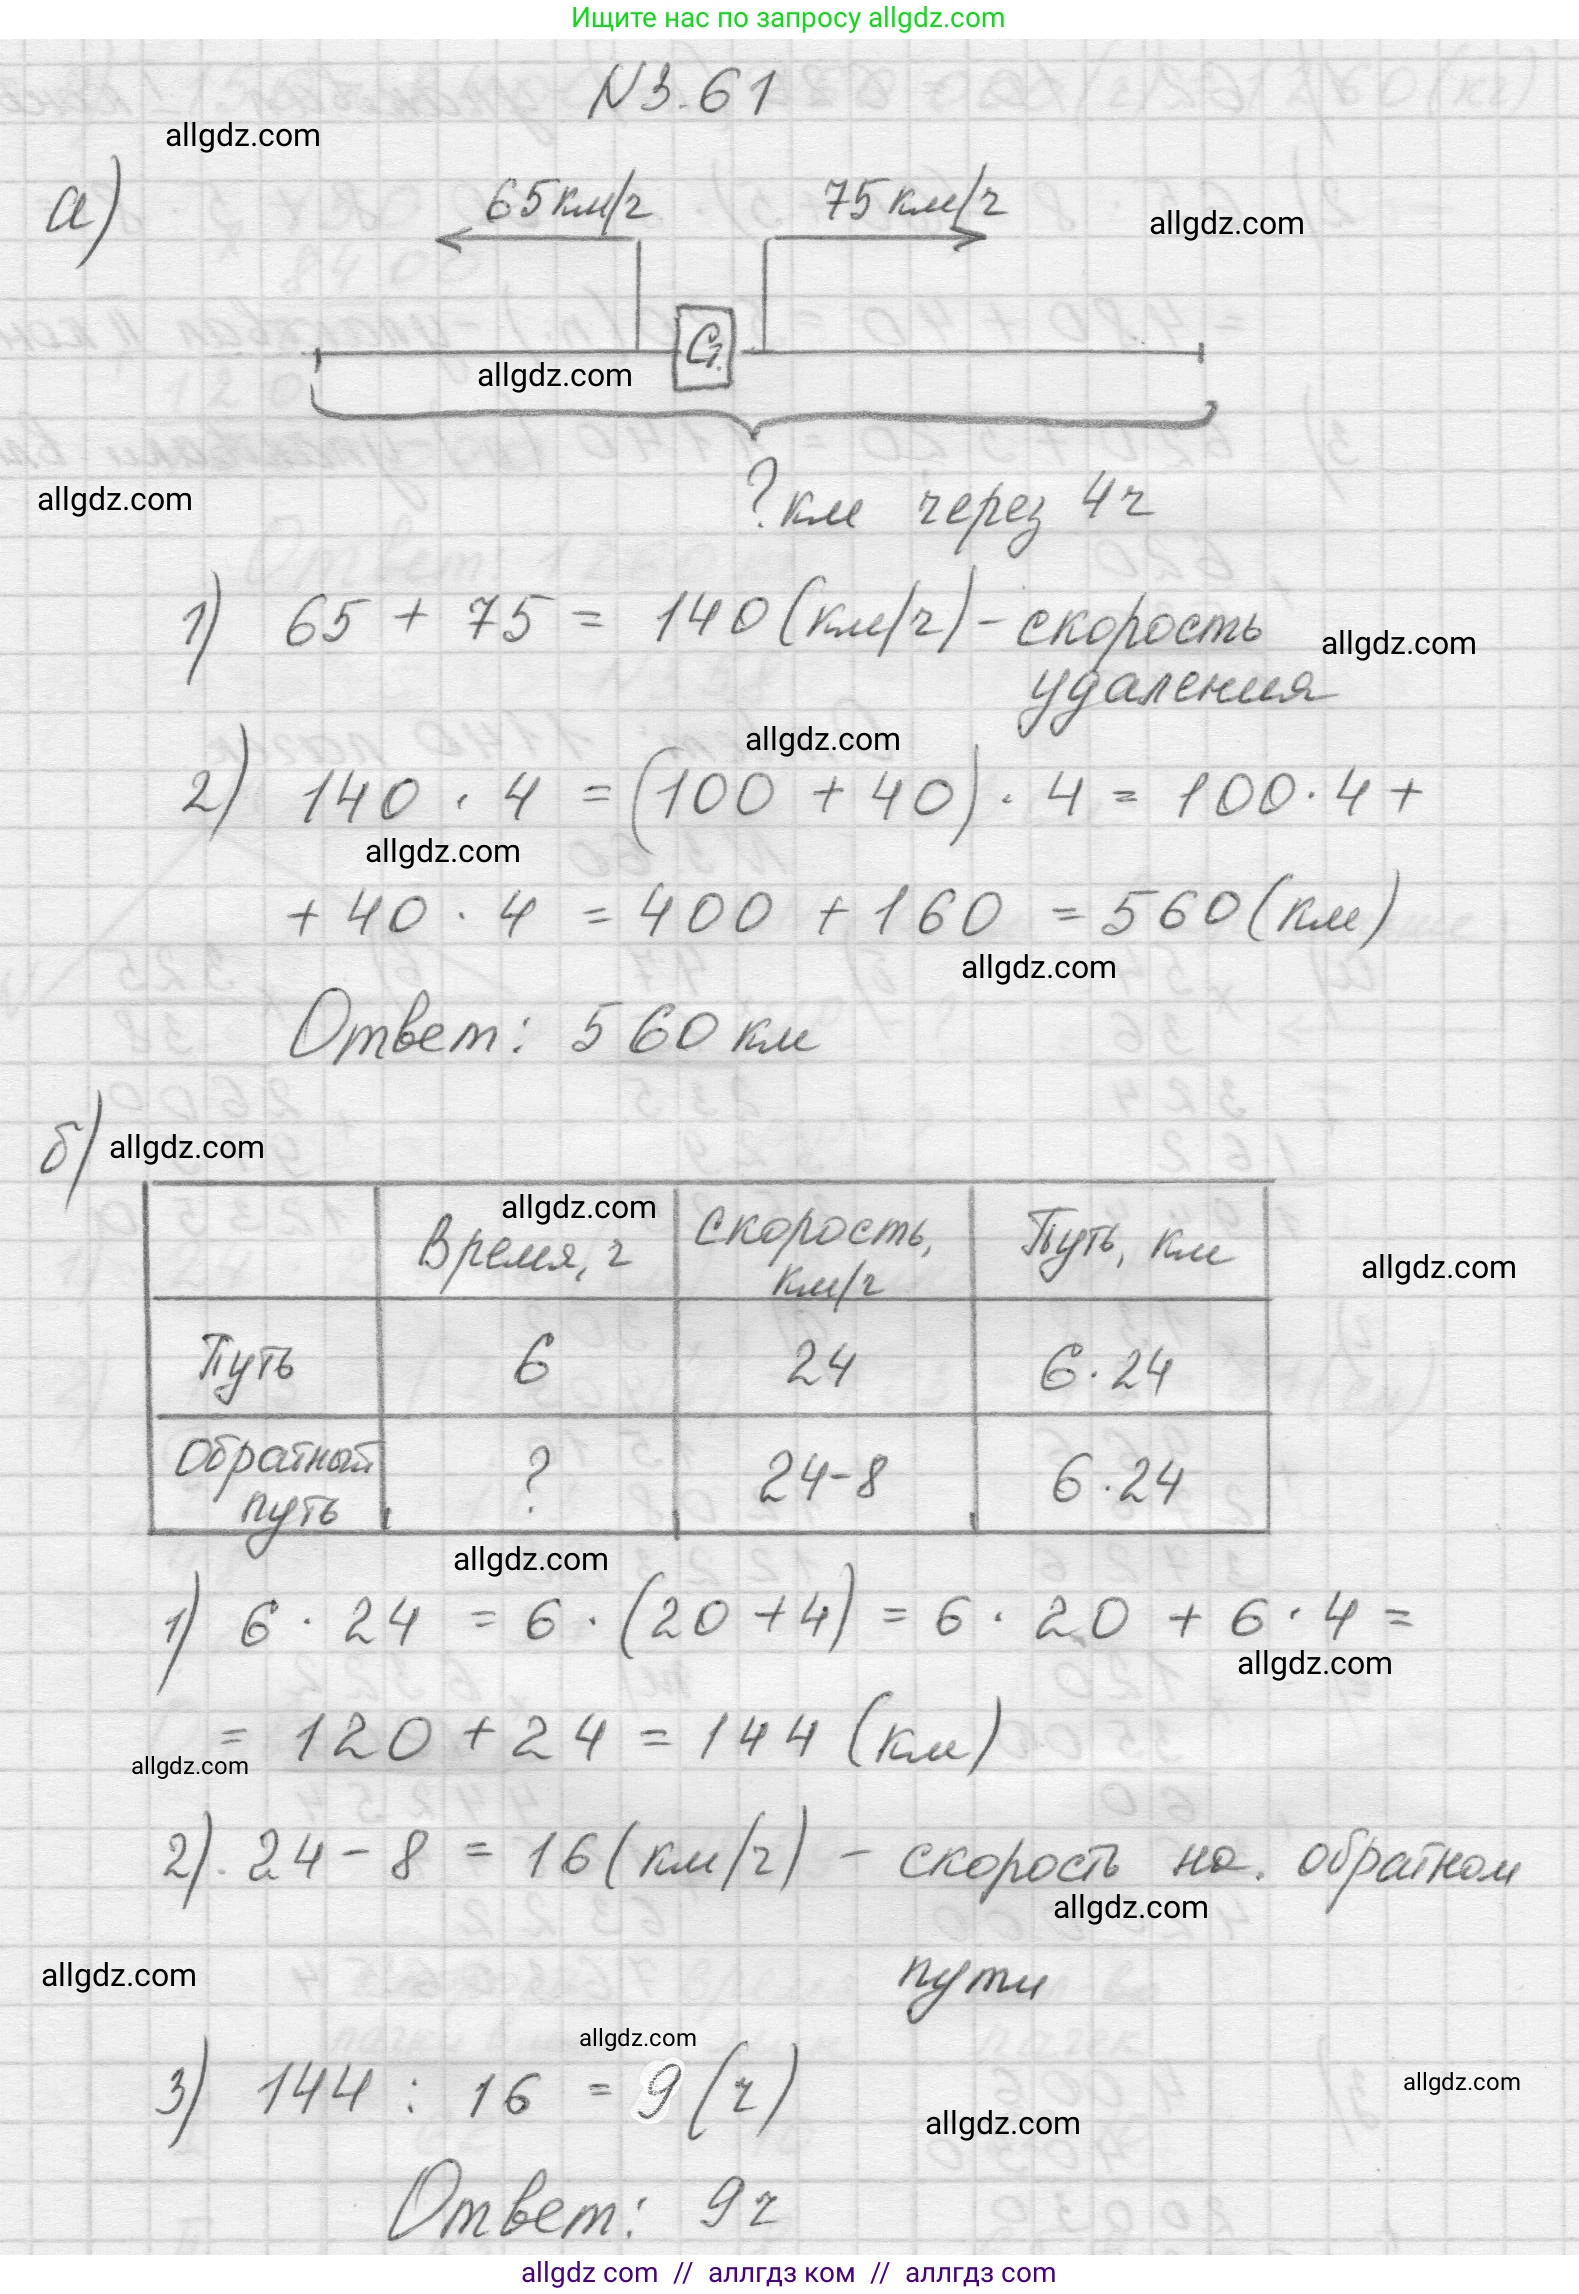 Ищите нас по запросу allgdz.com
N3.61
allgdz.com
а)
65 км/ч
75 км/ч
allgdz.com
С.
allgdz.com
allgdz.com
? км через 4ч
1) 65 + 75 = 140 (км/ч) - скорость
allgdz.com
удаления
allgdz.com
2) 140 · 4 = (100 + 40) · 4 = 100 · 4 +
allgdz.com
+ 40 · 4 = 400 + 160 = 560 (км)
allgdz.com
Ответ: 560 км
б) allgdz.com
allgdz.com
Время, ч
Скорость, км/ч
Путь, км
allgdz.com
Путь 6 24 6·24
Обратный путь ? 24-8 6·24
allgdz.com
1) 6 · 24 = 6 · (20 + 4) = 6 · 20 + 6 · 4 =
allgdz.com
= 120 + 24 = 144 (км)
allgdz.com
2). 24 - 8 = 16 (км/ч) - скорость на. обратном
allgdz.com
allgdz.com
пути
allgdz.com
3) 144 : 16 = 9 (ч)
allgdz.com
allgdz.com
Ответ: 9ч
allgdz com // аллгдз ком // аллгдз com